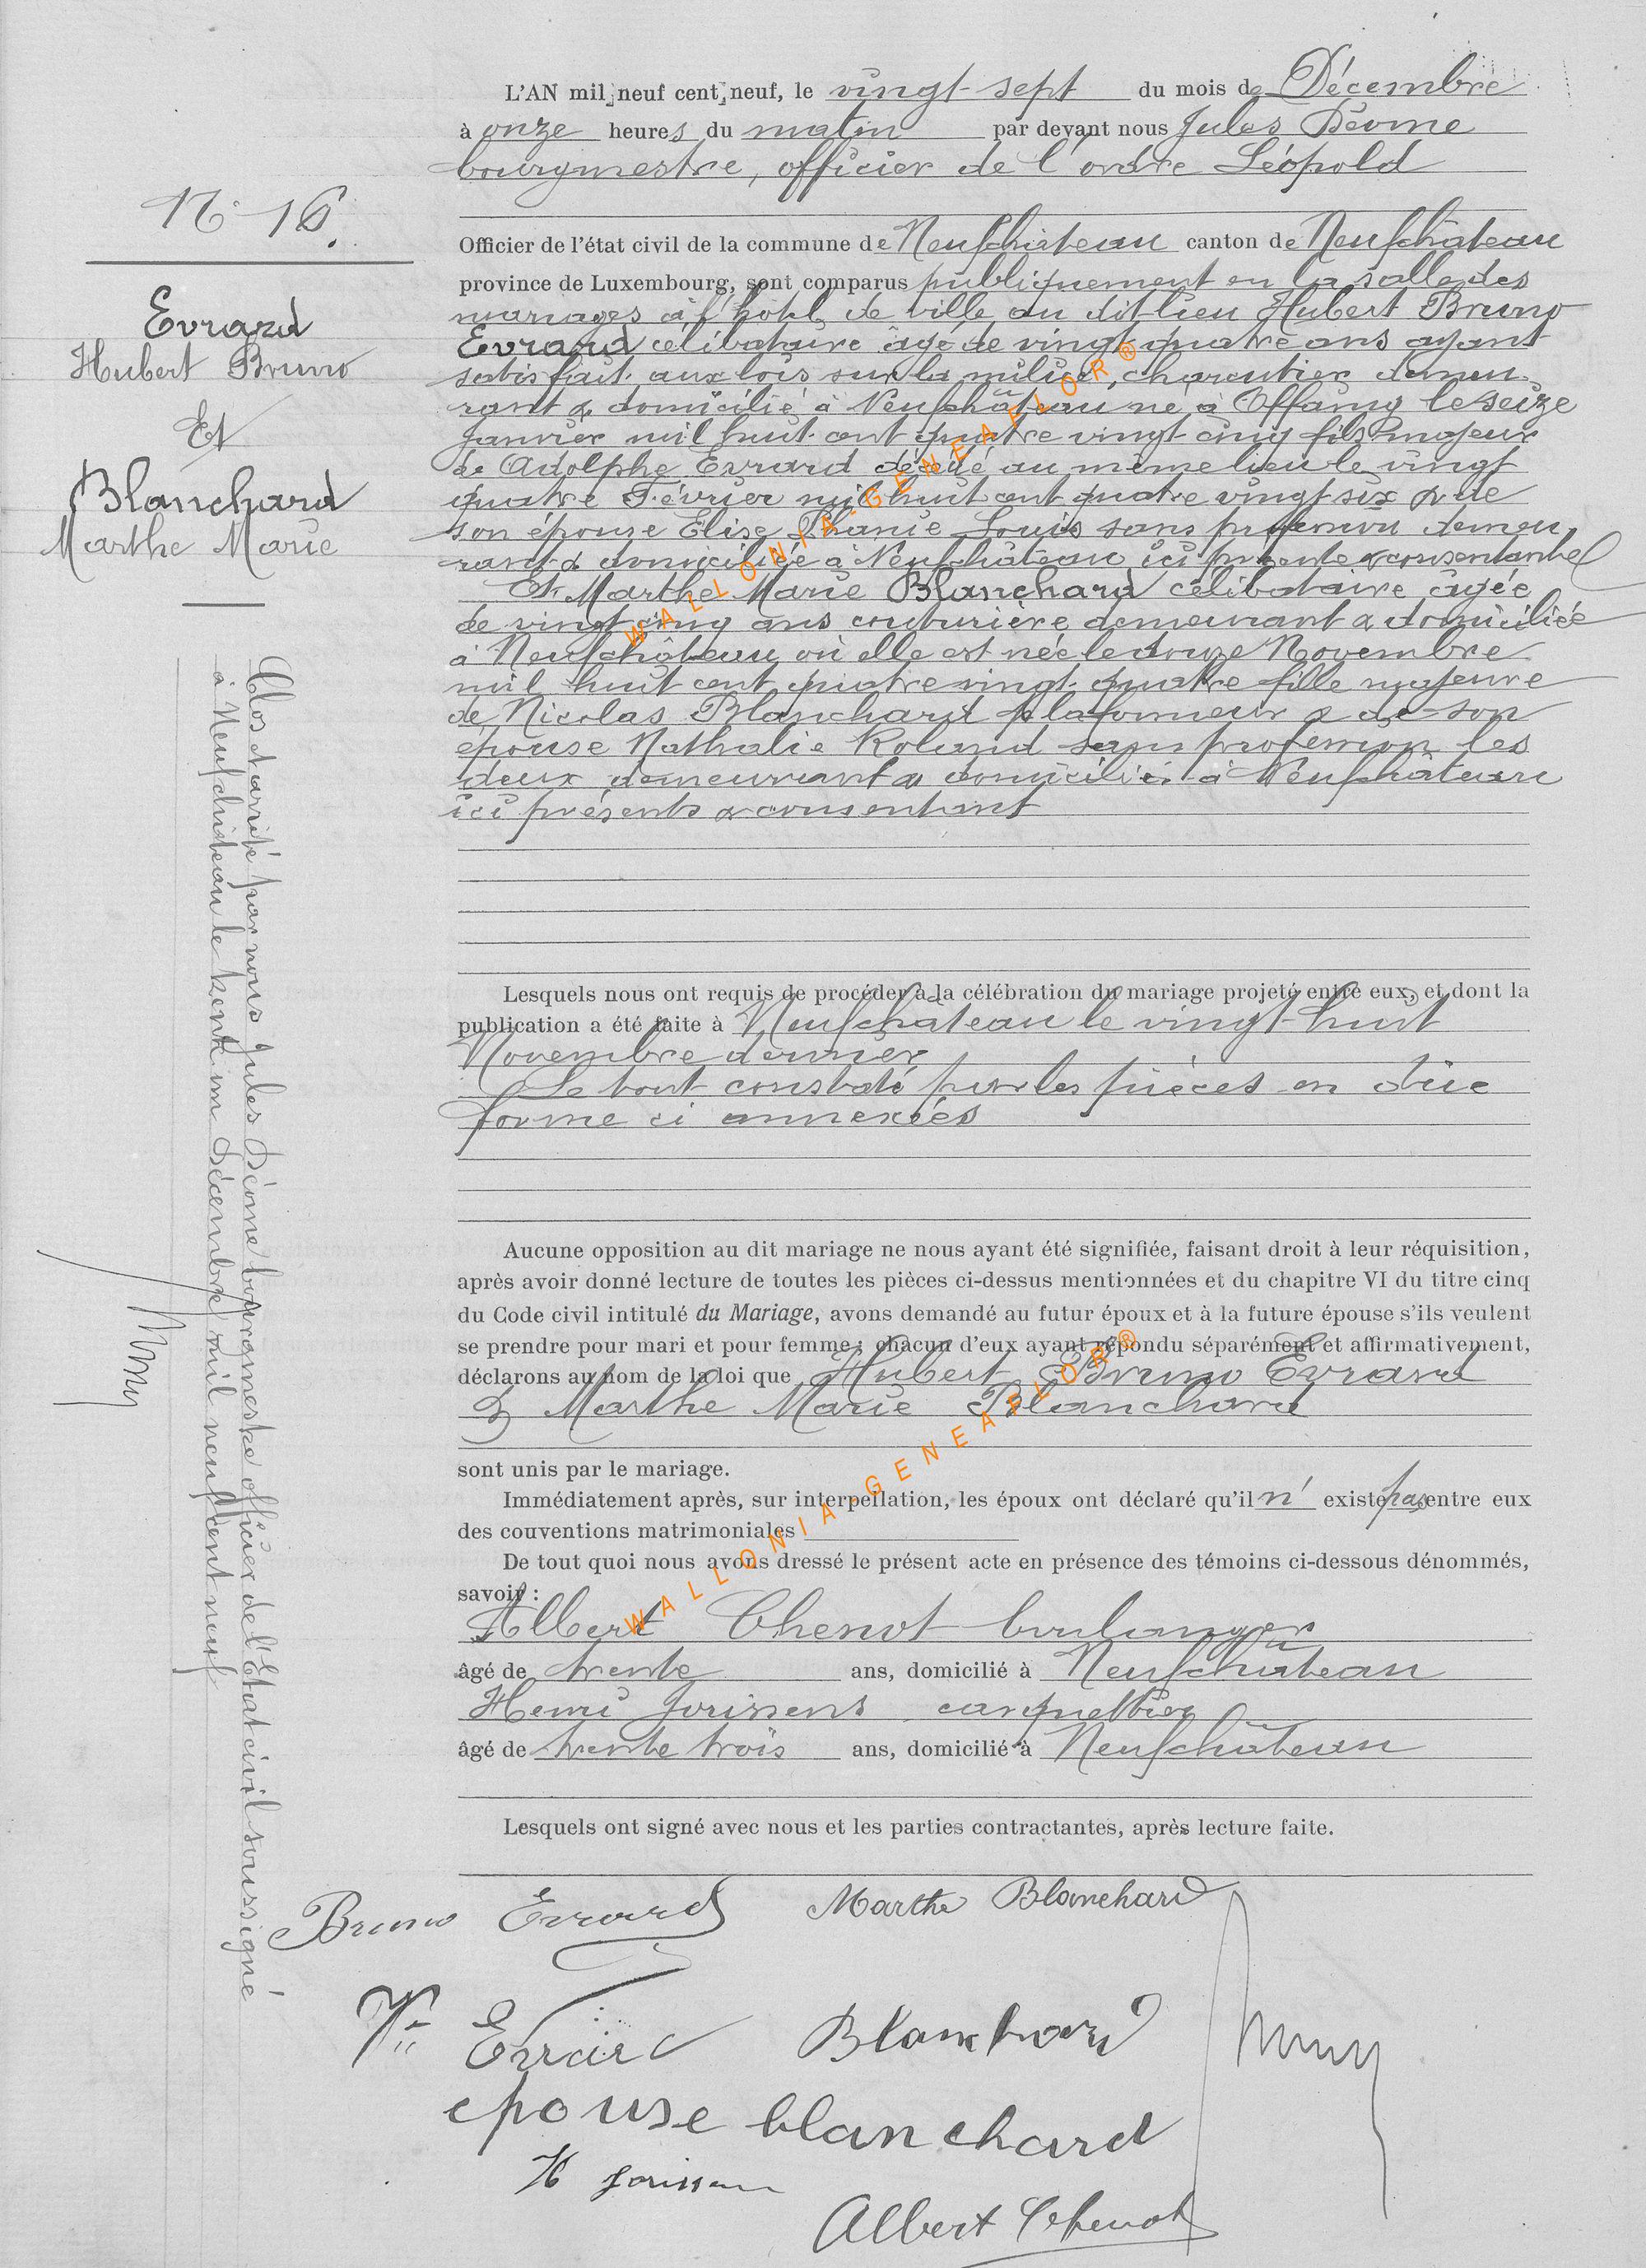 N° 16.
Evrard
Hubert Bruno
Et
Blanchard
Marthe Marie
L'AN mil neuf cent neuf, le vingt-sept du mois de Décembre
à onze heures du matin par devant nous Jules Déome
bourgmestre, officier de l'ordre Léopold
Officier de l'état civil de la commune de Neufchâteau canton de Neufchâteau
province de Luxembourg, sont comparus publiquement en la salle des
mariages à l'hôtel de ville au dit lieu Hubert Bruno
Evrard célibataire âgé de vingt quatre ans ayant
satisfait aux lois sur la milice, charcutier demeu
rant & domicilié à Neufchâteau né à Offaing le seize
Janvier mil huit cent quatre vingt cinq fils majeur
de Adolphe Evrard décédé au même lieu le vingt
quatre Février mil huit cent quatre vingt six & de
son épouse Elise Louis sans profession demeu
rant & domiciliée à Neufchâteau ici présente & consentante
Et Marthe Marie Blanchard célibataire âgée
de vingt cinq ans couturière demeurant & domiciliée
à Neufchâteau où elle est née le douze Novembre
mil huit cent quatre vingt quatre fille majeure
de Nicolas Blanchard plafonneur & de son
épouse Nathalie Roland sans profession les
deux demeurant & domiciliés à Neufchâteau
ici présents & consentant
Lesquels nous ont requis de procéder à la célébration du mariage projeté entre eux, et dont la
publication a été faite à Neufchâteau le vingt-huit
Novembre dernier
Le tout constaté par les pièces en due
forme ci annexées
Aucune opposition au dit mariage ne nous ayant été signifiée, faisant droit à leur réquisition,
après avoir donné lecture de toutes les pièces ci-dessus mentionnées et du chapitre VI du titre cinq
du Code civil intitulé du Mariage, avons demandé au futur époux et à la future épouse s'ils veulent
se prendre pour mari et pour femme; chacun d'eux ayant répondu séparément et affirmativement,
déclarons au nom de la loi que Hubert Bruno Evrard
& Marthe Marie Blanchard
sont unis par le mariage.
Immédiatement après, sur interpellation, les époux ont déclaré qu'il n' existe pas entre eux
des couventions matrimoniales
De tout quoi nous avons dressé le présent acte en présence des témoins ci-dessous dénommés,
savoir :
Albert Chenot boulanger
âgé de trente ans, domicilié à Neufchâteau
Henri Jorissens carquettier
âgé de trente trois ans, domicilié à Neufchâteau
Lesquels ont signé avec nous et les parties contractantes, après lecture faite.
Bruno Evrard Marthe Blanchard
Vve Evrard Blanchard
epouse blanchard
H Jorissen
Albert Chenot
Clos & arrêté par nous Jules Déome bourgmestre officier de l'Etat civil soussigné
à Neufchâteau le trente un Décembre mil neuf cent neuf
WALLONIA-GENEAFLOR®
WALLONIA-GENEAFLOR®